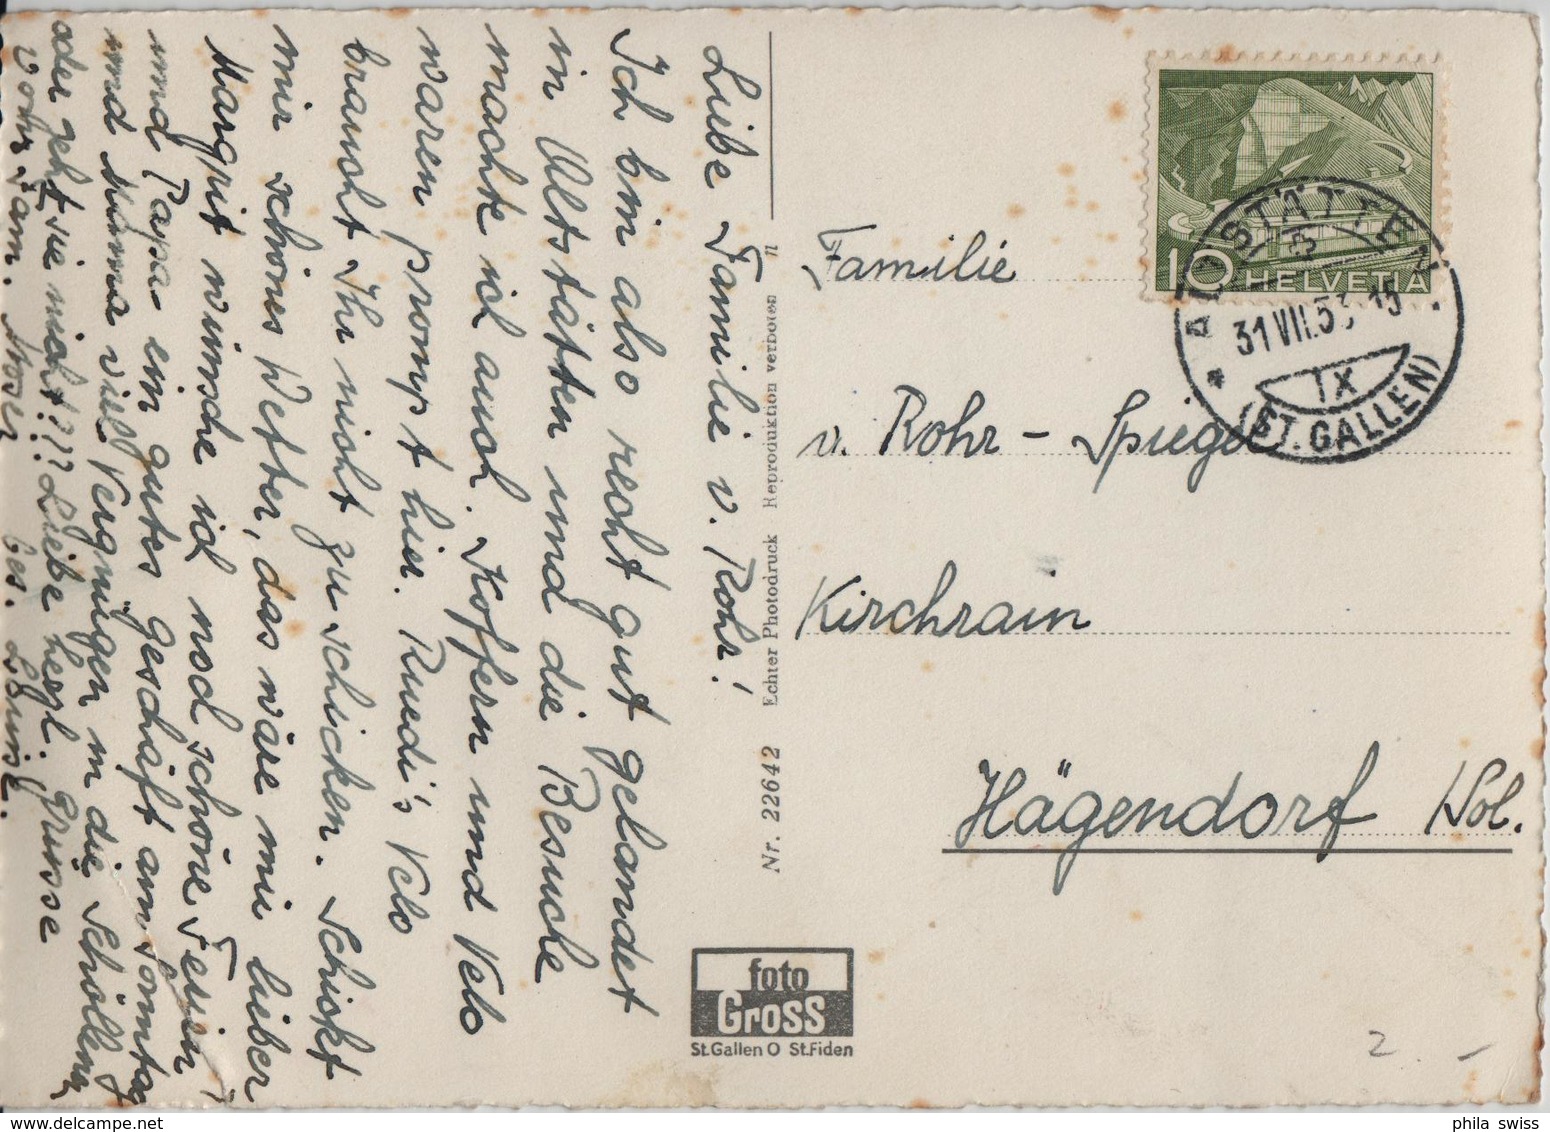 Liebe Familie v. Rohr!
Ich bin also recht gut gelandet
in Altstätten und die Besuche
machte ich auch. Koffern und Velo
waren prompt hier. Ruedi's Velo
braucht Ihr nicht zu schicken. Schickt
mir schönes Wetter, das wäre mir lieber
Margrit wünsche ich noch schöne Ferien
und Papa ein gutes Geschäft am Sonntag
und Mama viel Vergnügen in die Schöllenen
oder geht sie nicht??? Liebe herzl. Grüsse
von Fam.
bes. Louise.
Nr. 22642 Echter Photodruck Reproduktion verboten n
foto
Gross
St.Gallen O St.Fiden
10 HELVETIA
ALTSTÄTTEN
31.VII.53.-15
IX
(ST. GALLEN)
Familie
v. Rohr - Spiegel
Kirchrain
Hägendorf Sol.
2. -
phila swiss